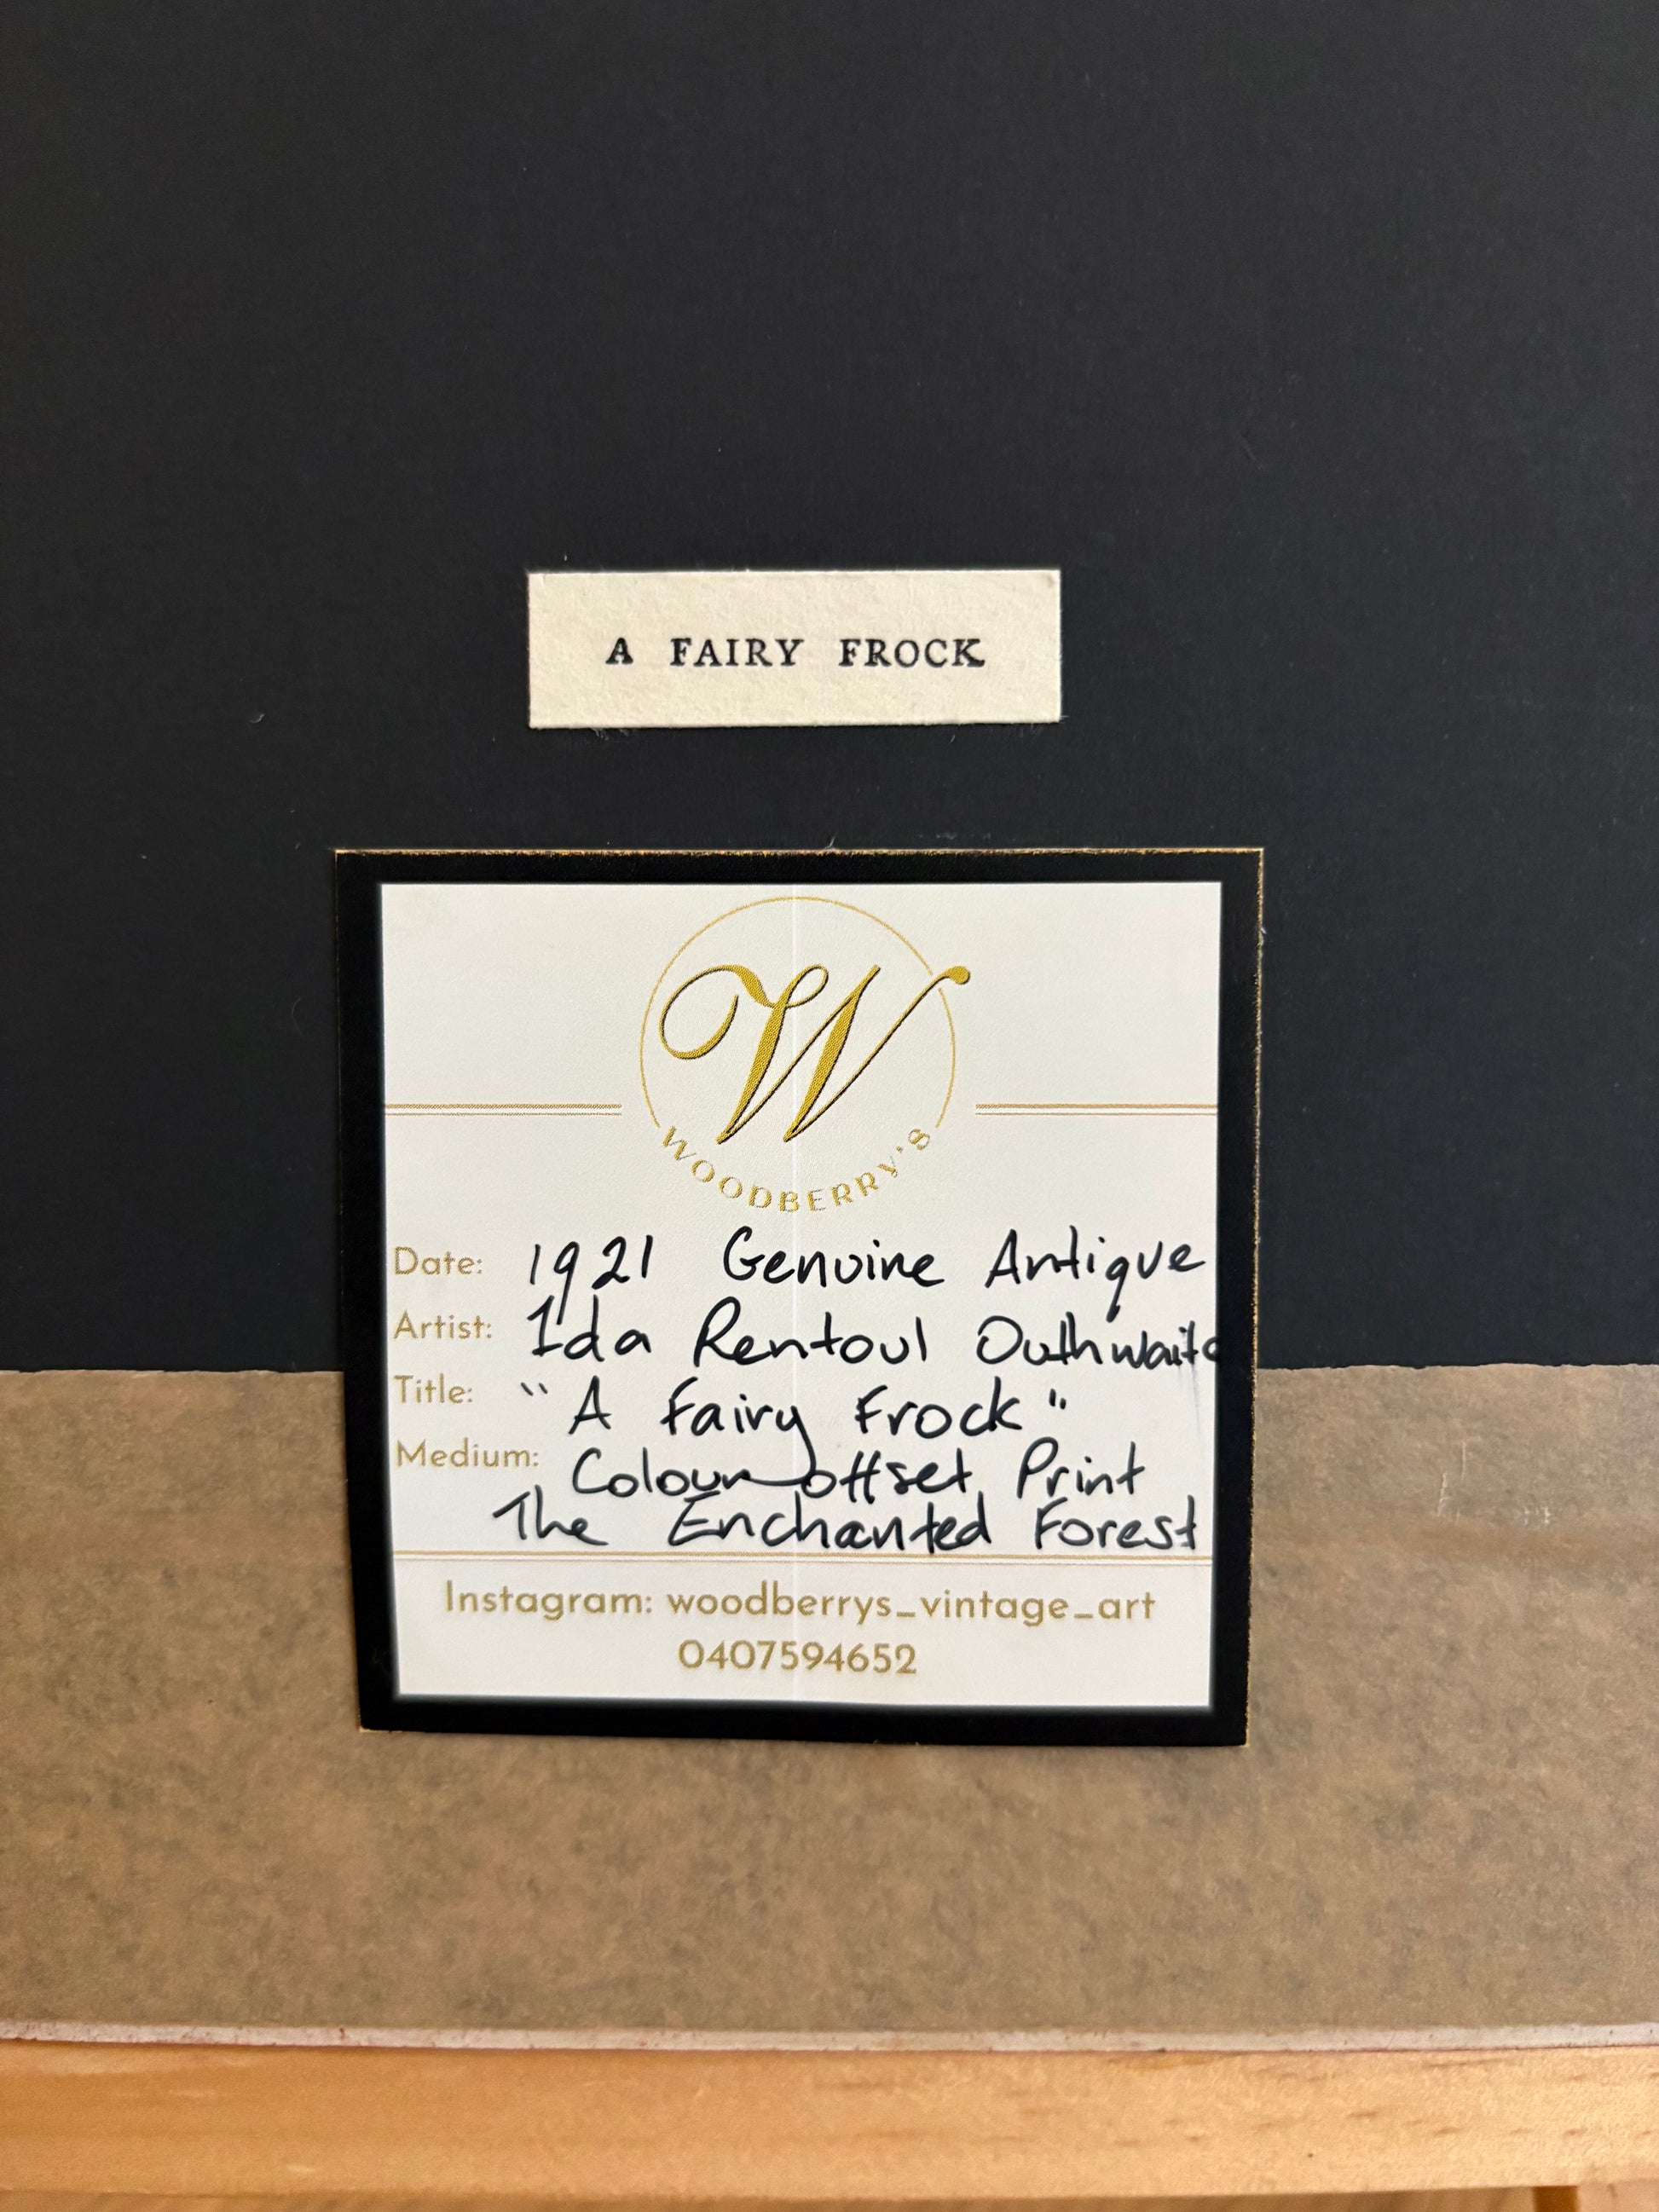 A FAIRY FROCK
W
WOODBERRY'S
Date: 1921 Genuine Antique
Artist: Ida Rentoul Outhwaite
Title: "A Fairy Frock"
Medium: Colour offset Print
The Enchanted Forest
Instagram: woodberrys_vintage_art
0407594652